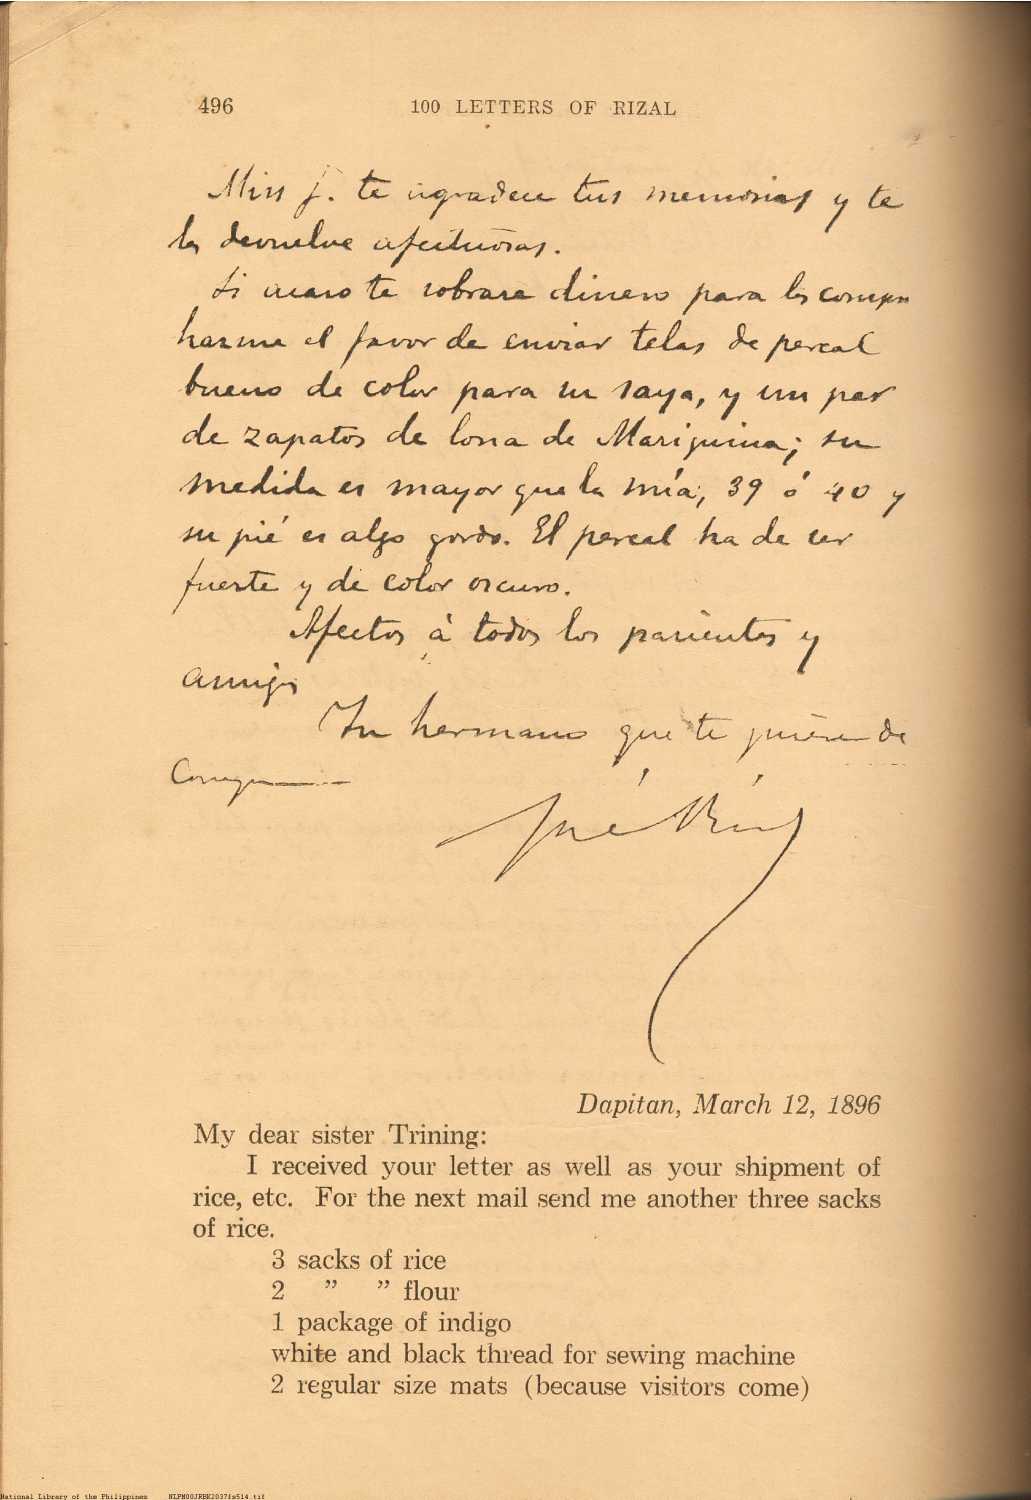 496 100 LETTERS OF RIZAL
Miss J. te agradece tus memorias y te
las devuelve afectuosas.
Si acaso te sobrase dinero para las
hazme el favor de enviar telas de percal
bueno de color para su saya, y un par
de zapatos de lona de Mariquina; su
medida es mayor que la mía, 39 ó 40 y
su pié es algo gordo. El percal ha de ser
fuerte y de color oscuro.
Afectos á todos los parientes y
amigos
Tu hermano que te quiere de
José Rizal
Dapitan, March 12, 1896
My dear sister Trining:
I received your letter as well as your shipment of
rice, etc. For the next mail send me another three sacks
of rice.
3 sacks of rice
2 ” ” flour
1 package of indigo
white and black thread for sewing machine
2 regular size mats (because visitors come)
National Library of the Philippines NLPM00JRBK2037fs514.tif